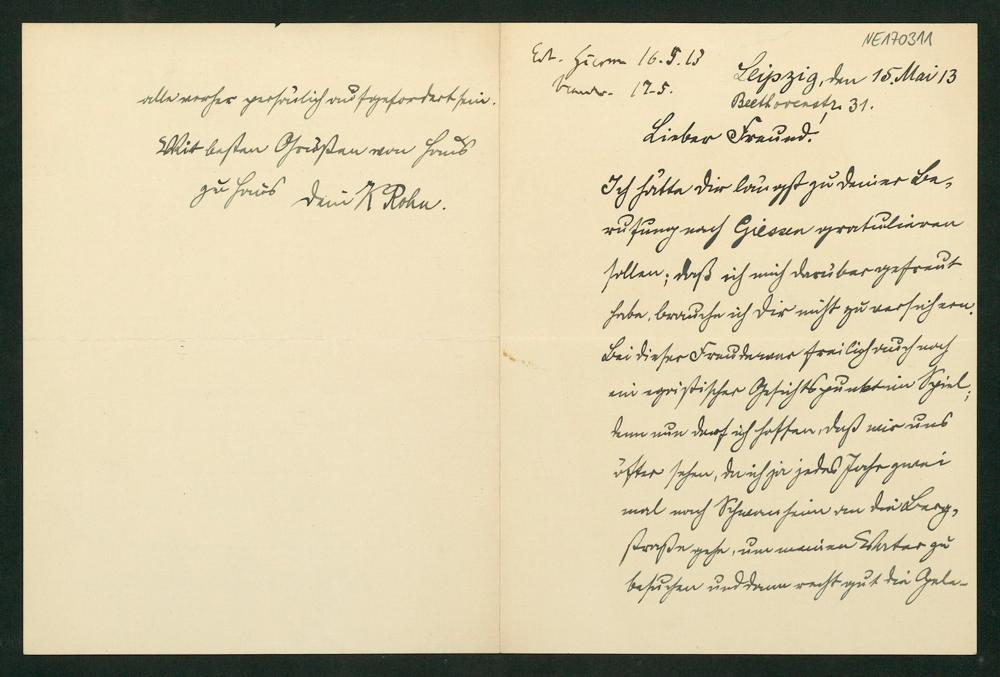 alle vorher persönlich aufgefordert sein.
Mit besten Grüßen von Haus
zu Haus Dein K Rohn.
NE170311
16.5.13
17.5.
Leipzig, den 15. Mai 13
Beethovenstr. 31.
Lieber Freund!
Ich hätte Dir längst zu deiner Be-
rufung nach Giessen gratulieren
sollen; daß ich mich darüber gefreut
habe, brauche ich Dir nicht zu versichern.
Bei dieser Freude war freilich auch noch
ein egoistischer Gesichtspunkt im Spiel;
denn nun darf ich hoffen, daß wir uns
öfter sehen, da ich ja jedes Jahr zwei
mal nach Schwanheim an die Berg-
straße gehe, um meinen Vater zu
besuchen und dann recht gut die Gele-